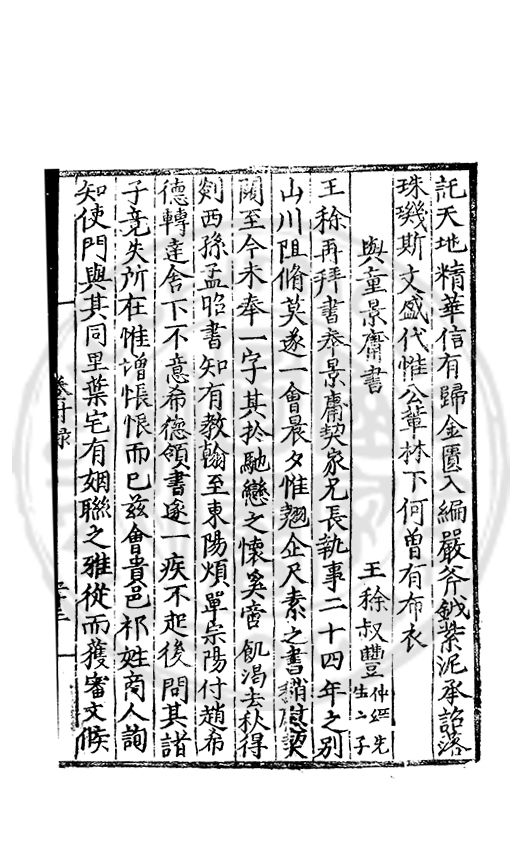 託天地精華信有歸金匱入編嚴斧鉞紫泥承詔落
珠璣斯文盛代惟公輩林下何曾有布衣
與童景庸書
王稌叔豐仲縉先生之子
王稌再拜書奉景庸契家兄長執事二十四年之別
山川阻脩莫遂一會晨夕惟翹企尺素之書慰契
闊至今未奉一字其於馳戀之懷奚啻飢渴去秋得
剡西孫孟昭書知有教翰至東陽煩單宗陽付趙希
德轉達舍下不意希德領書遂一疾不起後問其諸
子竟失所在惟增悵恨而已茲會貴邑祁姓商人詢
知使門與其同里葉宅有姻聯之雅從而獲審文候
卷附录